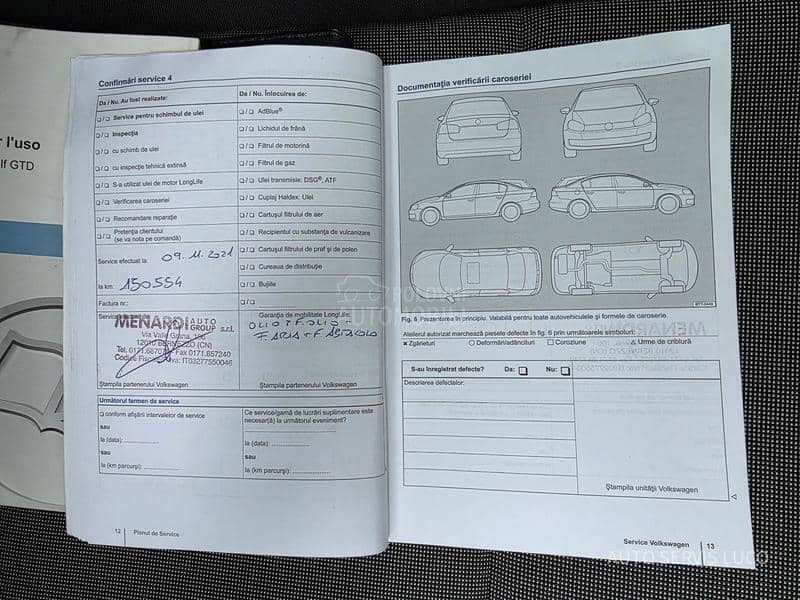 r l'uso
lf GTD
Confirmări service 4
Da / Nu. Au fost realizate:
❏ / ❏ Service pentru schimbul de ulei
❏ / ❏ Inspecția
❏ / ❏ cu schimb de ulei
❏ / ❏ cu inspecție tehnică extinsă
❏ / ❏ S-a utilizat ulei de motor LongLife
❏ / ❏ Verificarea caroseriei
❏ / ❏ Recomandare reparație
❏ / ❏ Pretenția clientului
(se va nota pe comandă)
Service efectuat la: 09.11.2021
la km: 150554
Factura nr.:
MENARDI AUTO
GROUP s.r.l.
Via Valle Grana, 106
12010 BERNEZZO (CN)
Fax 0171.857240
IT03277550046
Ștampila partenerului Volkswagen
Da / Nu. Înlocuirea de:
❏ / ❏ AdBlue®
❏ / ❏ Lichidul de frână
❏ / ❏ Filtrul de motorină
❏ / ❏ Filtrul de gaz
❏ / ❏ Ulei transmisie: DSG®, ATF
❏ / ❏ Cuplaj Haldex: Ulei
❏ / ❏ Cartușul filtrului de aer
❏ / ❏ Recipientul cu substanța de vulcanizare
❏ / ❏ Cartușul filtrului de praf și de polen
❏ / ❏ Cureaua de distribuție
❏ / ❏ Bujiile
❏ / ❏
Garanția de mobilitate LongLife:
OLIO + F.OLIO +
F.ARIA + F.ABITACOLO
Ștampila partenerului Volkswagen
Următorul termen de service
❏ conform afișării intervalelor de service
sau
la (data):
sau
la (km parcurși):
Ce service/gamă de lucrări suplimentare este
necesar(ă) la următorul eveniment?
la (data):
sau
la (km parcurși):
12 Planul de Service
Documentația verificării caroseriei
Fig. 6 Prezentarea în principiu. Valabilă pentru toate autovehiculele și formele de caroserie.
Atelierul autorizat marchează piesele defecte în fig. 6 prin următoarele simboluri:
× Zgârieturi ○ Deformări/adâncituri □ Coroziune △ Urme de criblură
S-au înregistrat defecte? Da: ❏ Nu: ❏
Descrierea defectelor:
Ștampila unității Volkswagen
Service Volkswagen 13
POLOVNI
AUTOMOBILI
AUTO SERVIS LUGO